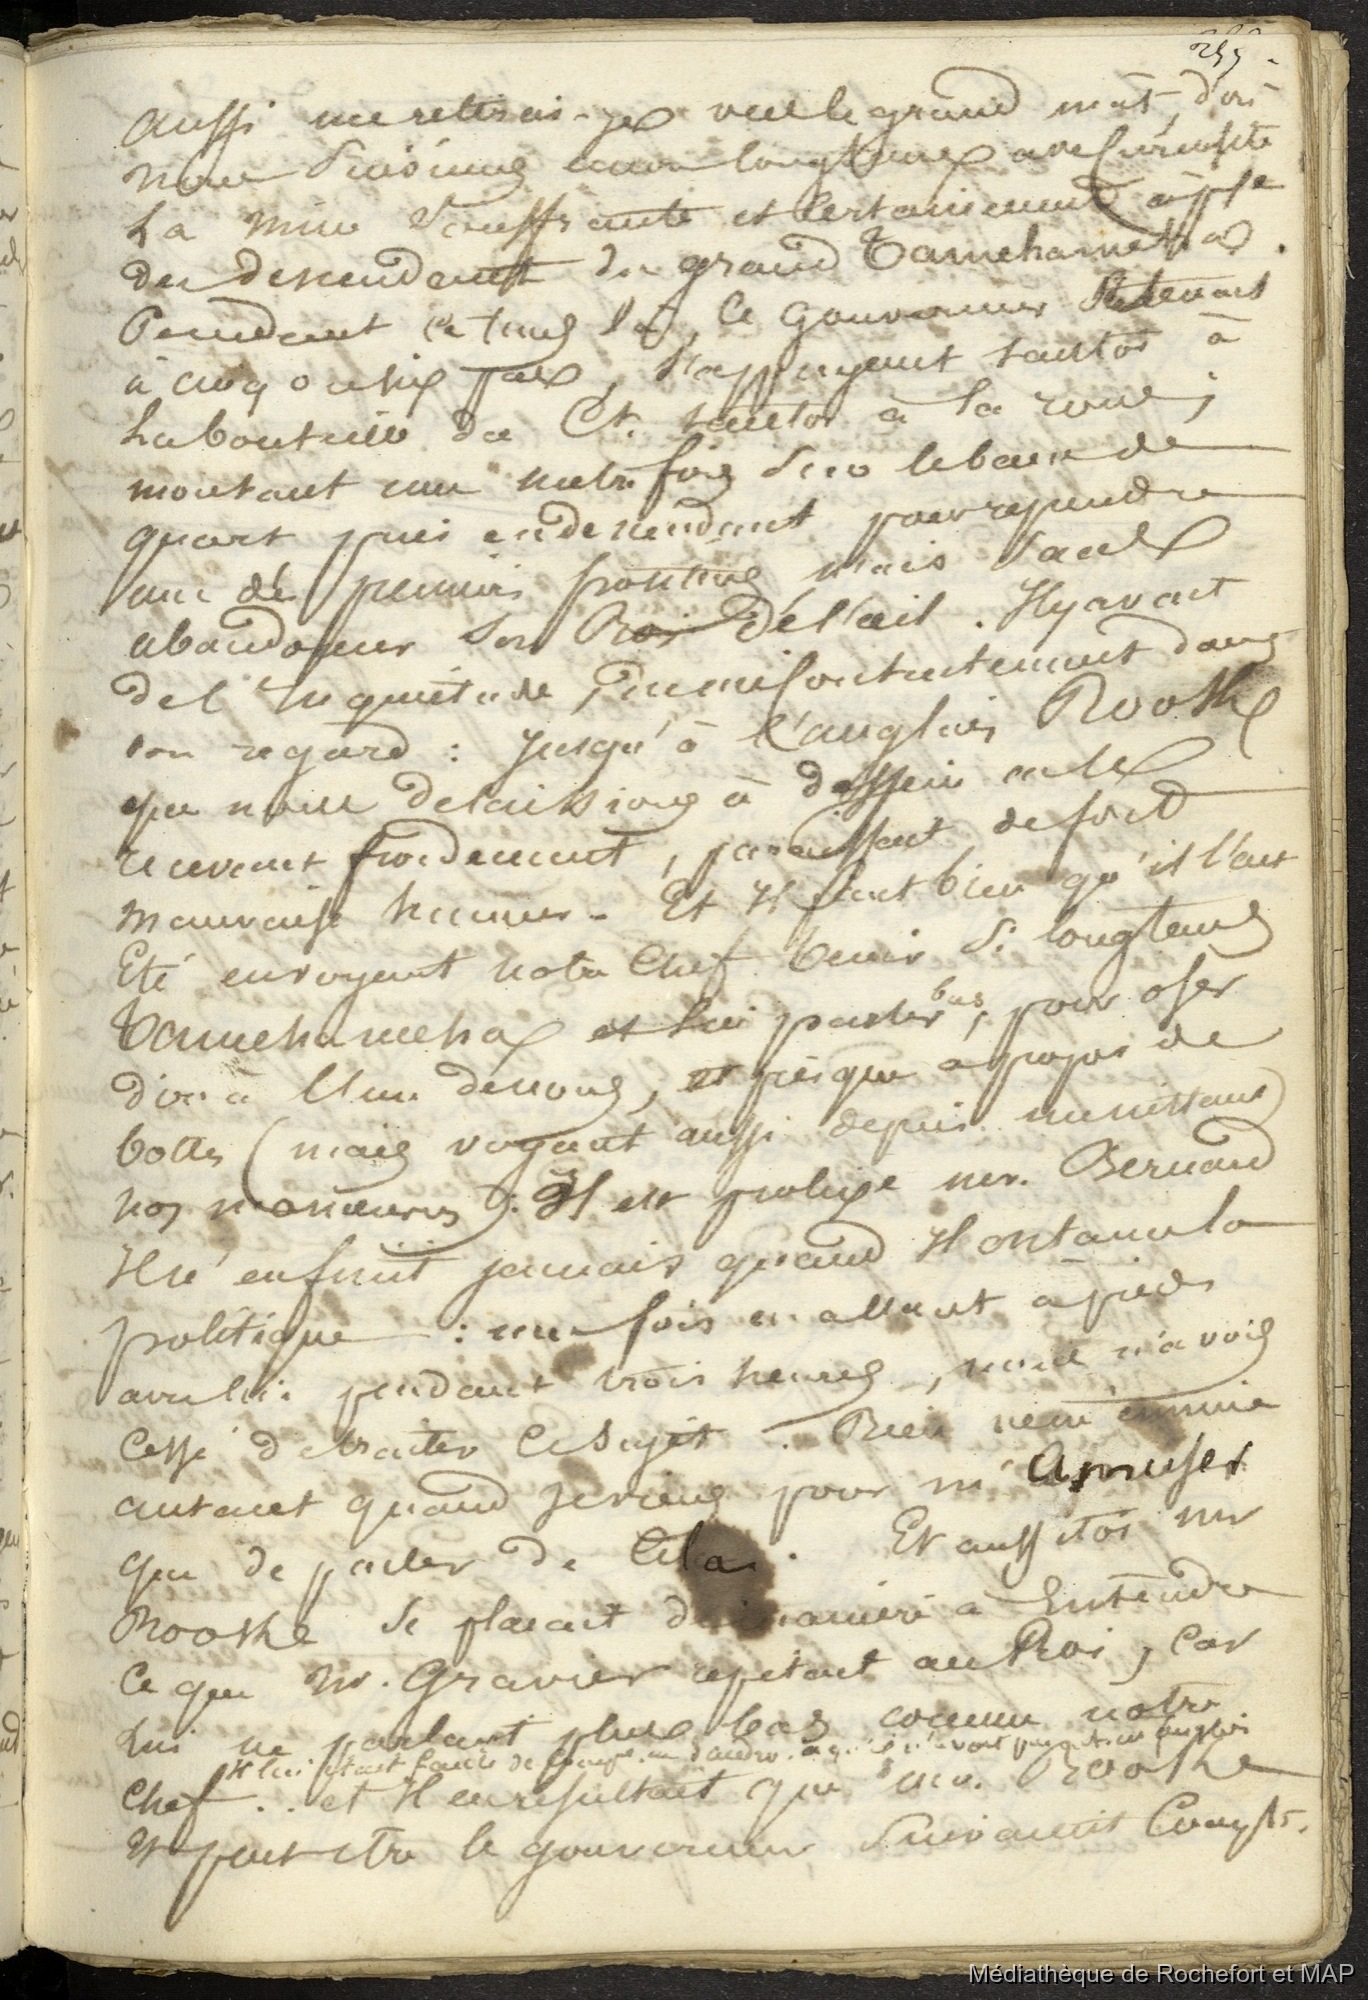 aussi me retirai-je vers le grand mât, d'où
nous suivimes encore longtems avec curiosité
la mine souffrante et certainement
des descendant du grand Tamehameha.
Pendant ce tems là, le gouverneur se tenait
à cinq ou six pas, s'appuyant tantôt à
la bouteille du Ct. tantôt à la roue;
montant une autre fois sur le banc de
quart puis en descendant pour reprendre
une de premiers positions, mais sans
abandonner son Roi de l'œil. Il y avait
de l'inquiétude, du mécontentement dans
son regard: jusqu'à l'anglais Rooke
que nous délaissions à dessein ou le
recevant froidement, paraissant de fort
mauvaise humeur. Et Il faut bien qu'il l'eut
été en voyant notre Chef tenir si longtems
Tamehameha et lui parler bas, pour oser
dire à l'un de nous, et presque à propos de
bottes (mais voyant aussi depuis un instant
nos manœuvres): Il est prolixe mr. Bernard
Il n'en finit jamais quand Il entame la
politique: une fois en allant à pieds
avec lui pendant trois heures, nous n'avois
cessé de traiter ce sujet. Rien ne m'ennuie
autant quand je viens pour m'amuser
que de parler de cela. Et aussitot mr
Rooke se plaçait de manière à Entendre
ce que Mr. Gravier repetait au Roi, car
lui ne parlant plus bas comme notre
Il lui
chef... et Il en resultait que mr. Rooke
Et peut etre le gouverneur suivaient
Médiathèque de Rochefort et MAP